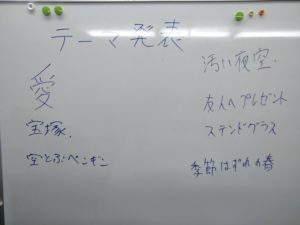 テーマ発表
愛
宝塚.
空とぶペンギン
汚い夜空.
友人へプレゼント
ステンドグラス
季節はずれの春